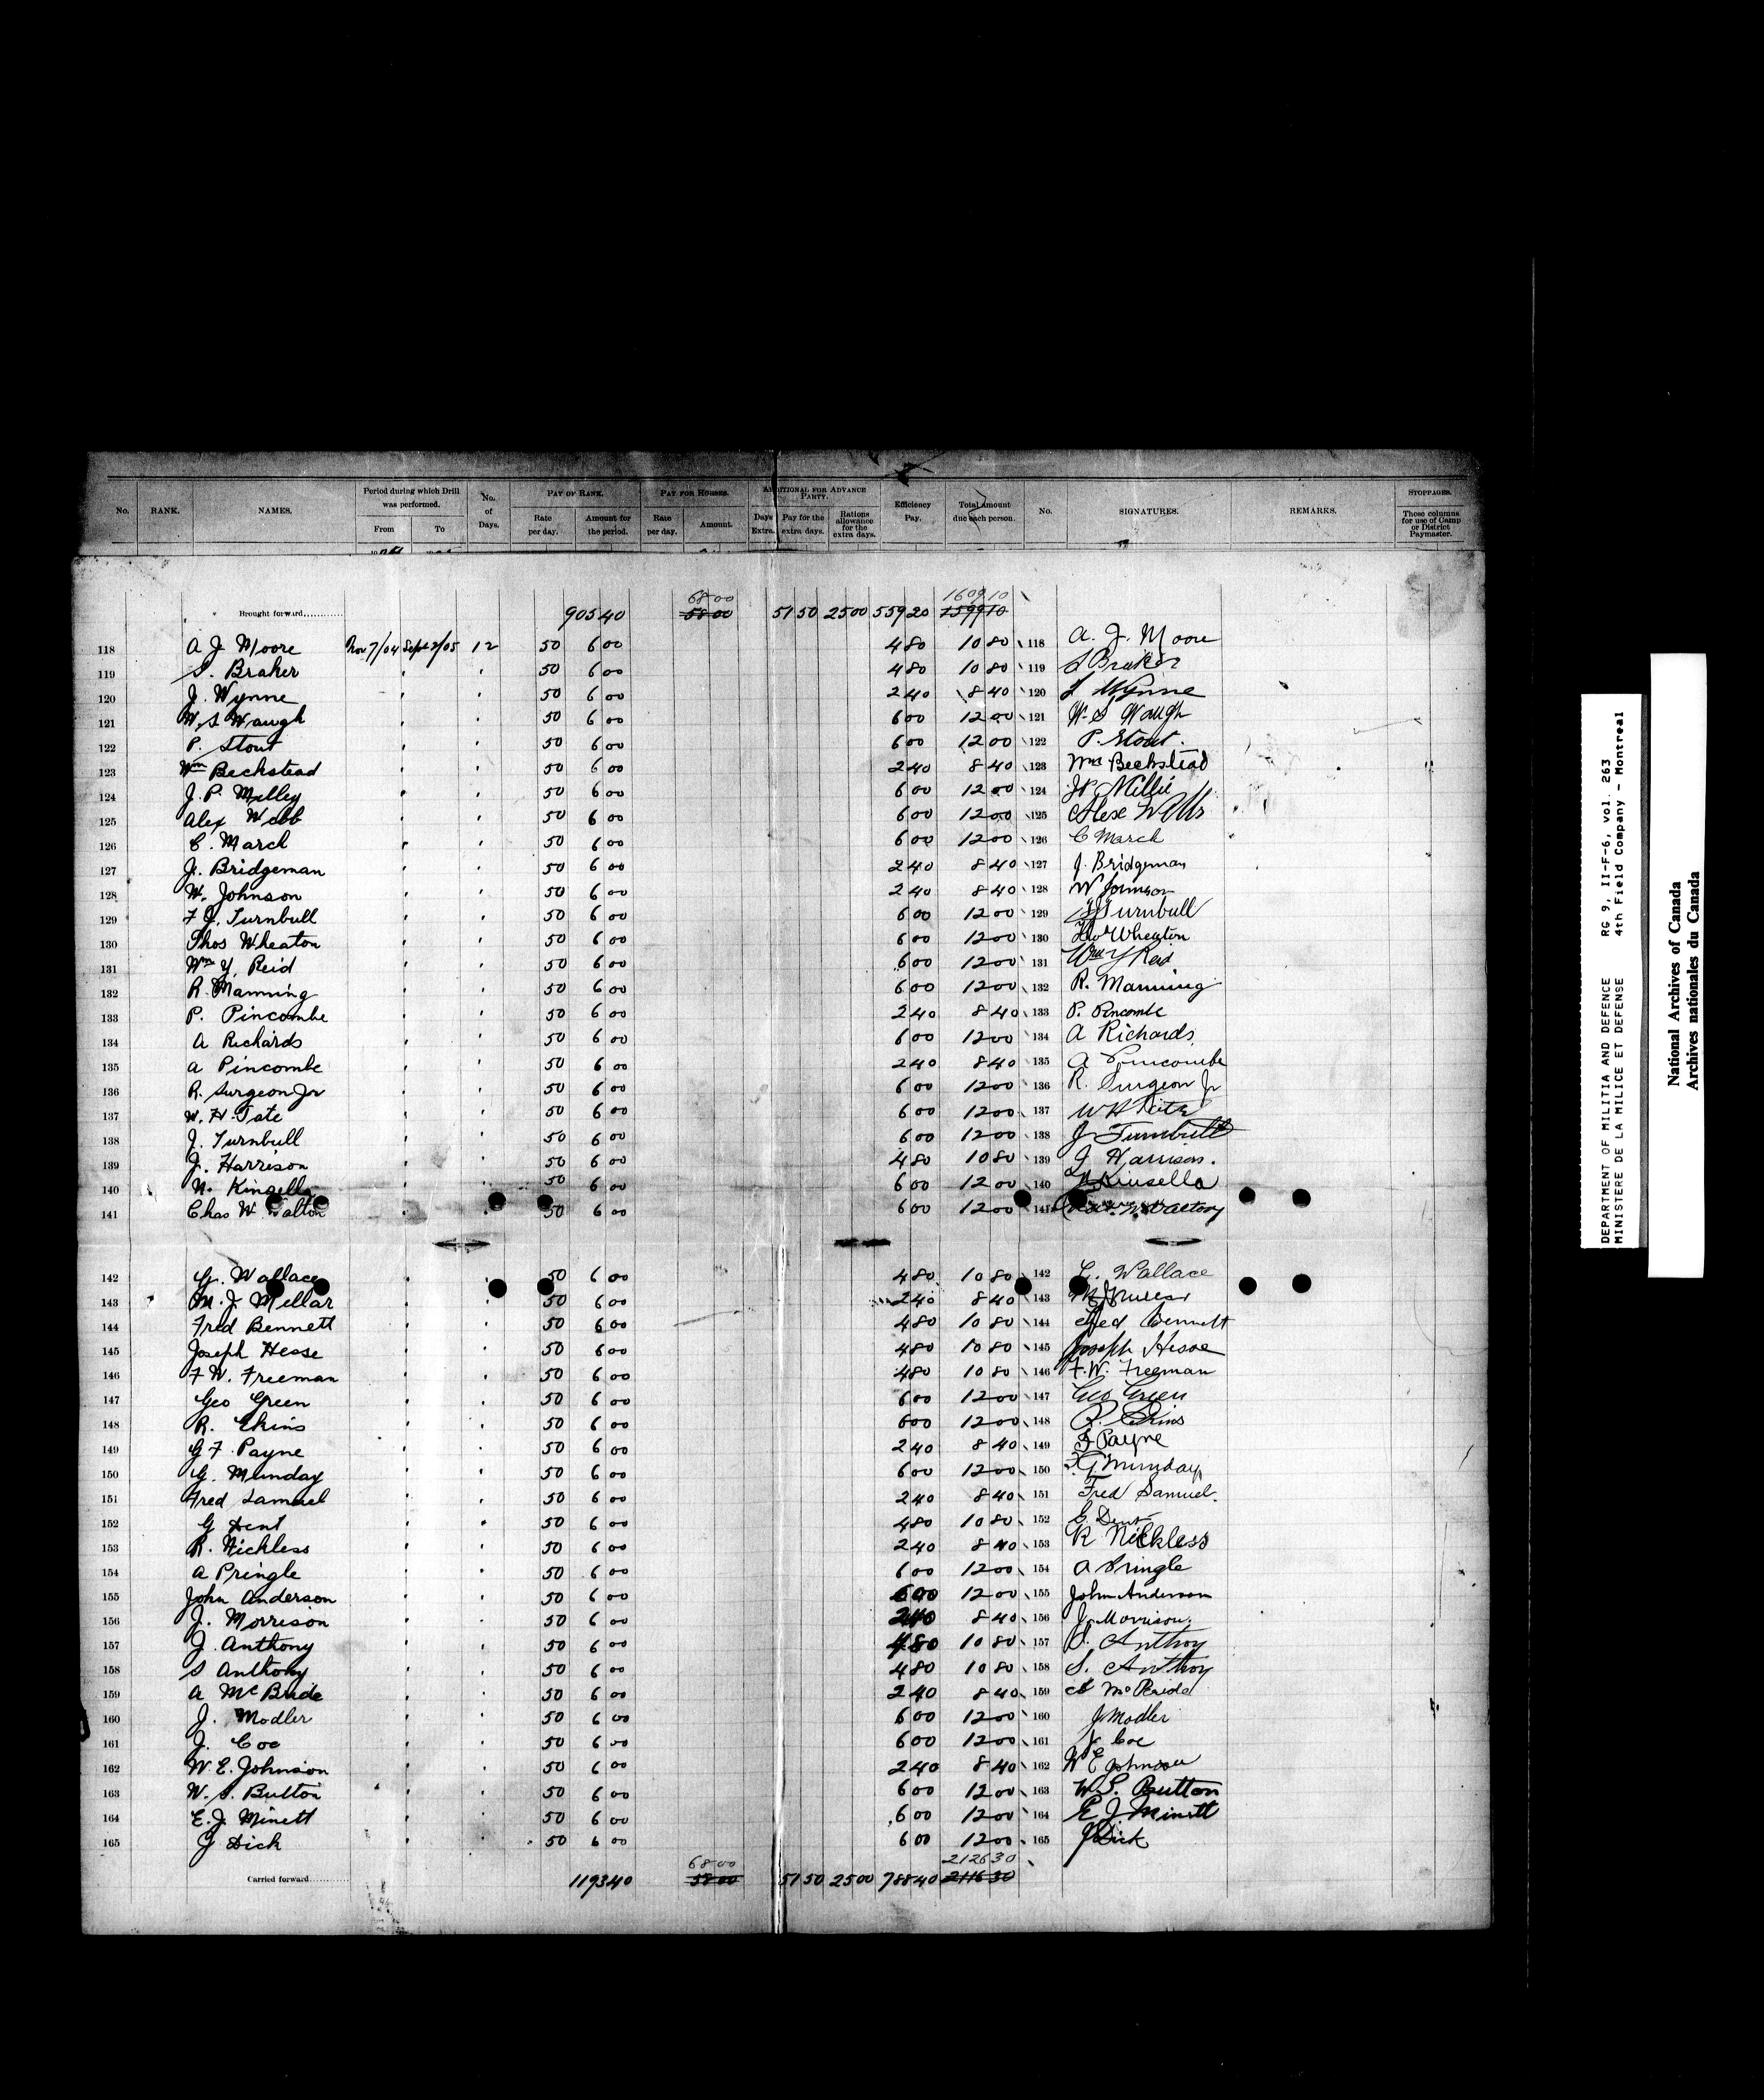 No. RANK. NAMES. Period during which Drill was performed. From To No. of Days. PAY OF RANK. Rate per day. Amount for the period. PAY FOR HORSES. Rate per day. Amount. ADDITIONAL FOR ADVANCE PARTY. Days Extra. Pay for the extra days. Rations allowance for the extra days. Efficiency Pay. Total Amount due each person. No. SIGNATURES. REMARKS. STOPPAGES. These columns for use of Camp or District Paymaster.
68 00 1609 10
Brought forward 905 40 58 00 51 50 25 00 559 20 1599 10
118 A J Moore Nov 7/04 Sept 2/05 12 50 6 00 4 80 10 80 118 A. J. Moore
119 S. Braker " " 50 6 00 4 80 10 80 119 S Braker
120 J. Wynne " " 50 6 00 2 40 8 40 120 J Wynne
121 W. S Waugh " " 50 6 00 6 00 12 00 121 W. S Waugh
122 P. Stout " " 50 6 00 6 00 12 00 122 P. Stout.
123 Wm Beckstead " " 50 6 00 2 40 8 40 123 Wm Beckstead
124 J. P. Milley " " 50 6 00 6 00 12 00 124 JP Millie
125 Alex Webb " " 50 6 00 6 00 12 00 125 Alex Webb
126 C. March " " 50 6 00 6 00 12 00 126 C March
127 J. Bridgeman " " 50 6 00 2 40 8 40 127 J. Bridgeman
128 W. Johnson " " 50 6 00 2 40 8 40 128 W Johnson
129 F J. Turnbull " " 50 6 00 6 00 12 00 129 FJ Turnbull
130 Thos Wheaton " " 50 6 00 6 00 12 00 130 Thos Wheaton
131 Wm Y. Reid " " 50 6 00 6 00 12 00 131 Wm Y Reid
132 R. Manning " " 50 6 00 6 00 12 00 132 R. Manning
133 P. Pincombe " " 50 6 00 2 40 8 40 133 P. Pincombe
134 A Richards " " 50 6 00 6 00 12 00 134 A Richards
135 A Pincombe " 50 6 00 2 40 8 40 135 A Pincombe
136 R. Surgeon Jr " " 50 6 00 6 00 12 00 136 R. Surgeon Jr
137 W. H. Tate " " 50 6 00 6 00 12 00 137 W H Tate
138 J. Turnbull " " 50 6 00 6 00 12 00 138 J Turnbull
139 J. Harrison " " 50 6 00 4 80 10 80 139 J Harrison.
140 N. Kinsella " " 50 6 00 6 00 12 00 140 Kinsella
141 Chas W. Walton " " 50 6 00 6 00 12 00 141 Chas. W. Walton
142 G. Wallace " " 50 6 00 4 80 10 80 142 G. Wallace
143 M. J. Mellar " " 50 6 00 2 40 8 40 143
144 Fred Bennett " " 50 6 00 4 80 10 80 144 Fred Bennett
145 Joseph Hesse " " 50 6 00 4 80 10 80 145 Joseph Hesse
146 F W. Freeman " " 50 6 00 4 80 10 80 146 F. W. Freeman
147 Geo Green " " 50 6 00 6 00 12 00 147 Geo Green
148 R. Ekins " " 50 6 00 6 00 12 00 148 R. Ekins
149 G F. Payne " " 50 6 00 2 40 8 40 149 F Payne
150 G. Munday " " 50 6 00 6 00 12 00 150 G Munday
151 Fred Samuel " " 50 6 00 2 40 8 40 151 Fred Samuel.
152 G Dent " " 50 6 00 4 80 10 80 152 G. Dent
153 R. Nickless " " 50 6 00 2 40 8 40 153 R Nickless
154 A Pringle " " 50 6 00 6 00 12 00 154 A Pringle
155 John Anderson " " 50 6 00 6 00 12 00 155 John Anderson
156 J. Morrison " " 50 6 00 2 40 8 40 156 J. Morrison.
157 J. Anthony " " 50 6 00 4 80 10 80 157 J. Anthoy
158 S Anthony " " 50 6 00 4 80 10 80 158 S. Anthoy
159 A McBride " " 50 6 00 2 40 8 40 159 A McBride
160 J. Modler " " 50 6 00 6 00 12 00 160 J Modler
161 J. Coe " " 50 6 00 6 00 12 00 161 J Coe
162 W. E. Johnson " " 50 6 00 2 40 8 40 162 W E Johnson
163 W. S. Button " " 50 6 00 6 00 12 00 163 W. S. Button
164 E. J. Minett " " 50 6 00 6 00 12 00 164 E J. Minett
165 J Dick " " 50 6 00 6 00 12 00 165 J Dick
68 00 2126 30
Carried forward 1193 40 58 00 51 50 25 00 788 40 2116 30
DEPARTMENT OF MILITIA AND DEFENCE RG 9, II-F-6, vol. 263
MINISTERE DE LA MILICE ET DEFENSE 4th Field Company - Montreal
National Archives of Canada
Archives nationales du Canada